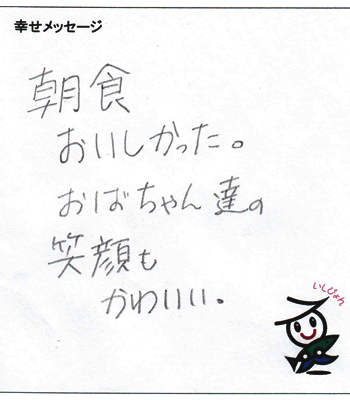 幸せメッセージ
朝食
おいしかった。
おばちゃん達の
笑顔も
かわいい。
いしぴょん